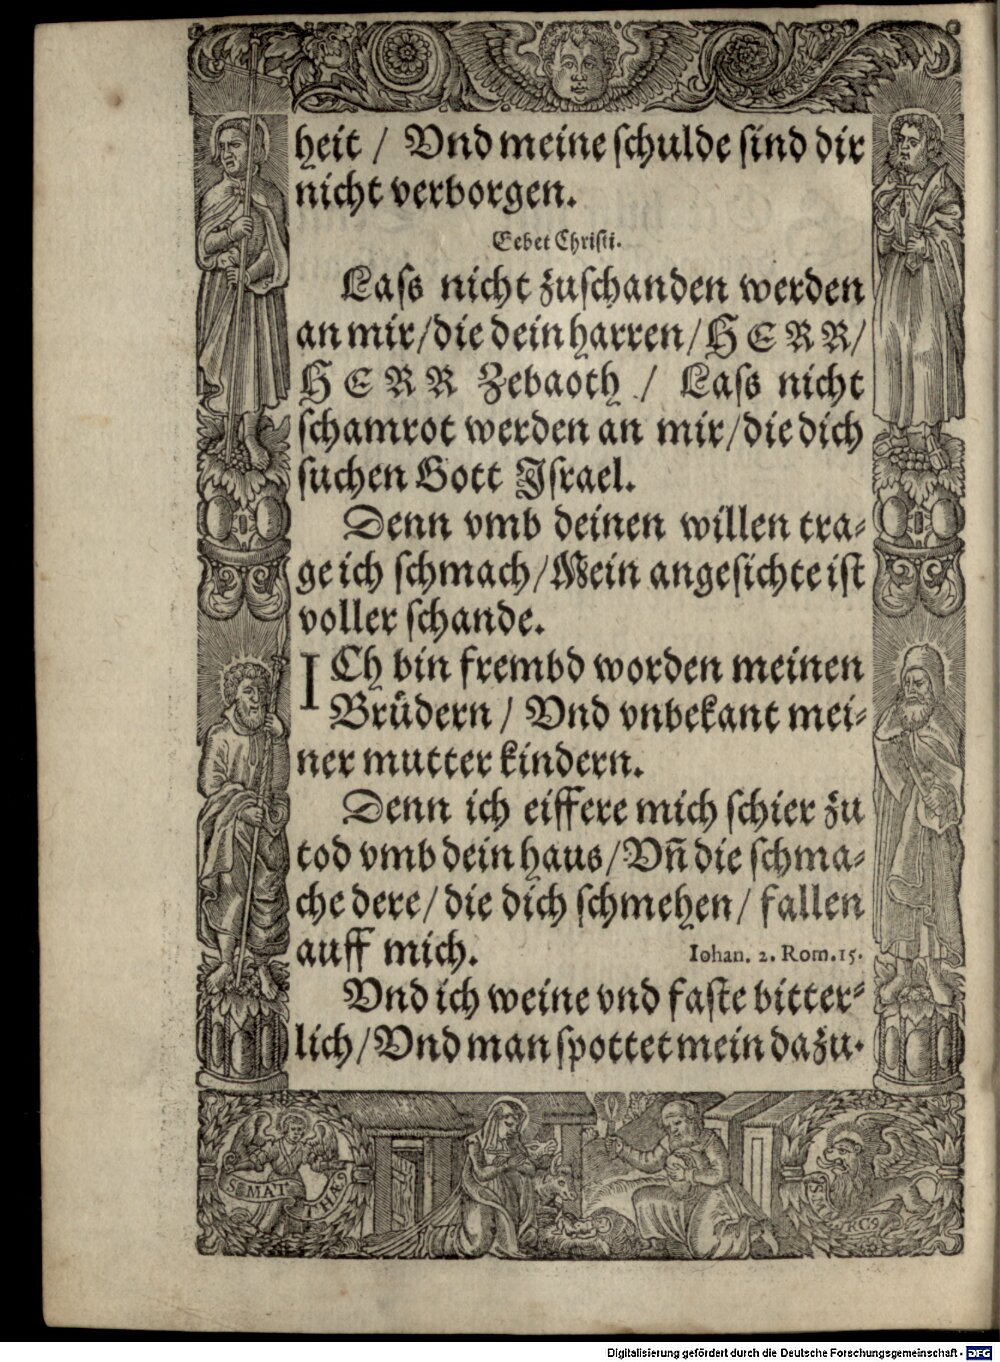 heit / Vnd meine schulde sind dir
nicht verborgen.
Gebet Christi.
Lass nicht zuschanden werden
an mir/die dein harren/HERR/
HERR Zebaoth / Lass nicht
schamrot werden an mir/die dich
suchen Gott Israel.
Denn vmb deinen willen tra-
ge ich schmach/Mein angesichte ist
voller schande.
ICh bin frembd worden meinen
Brüdern / Vnd vnbekant mei-
ner mutter kindern.
Denn ich eiffere mich schier zu
tod vmb dein haus/Vñ die schma-
che dere/die dich schmehen/fallen
auff mich.
Iohan. 2. Rom.15.
Vnd ich weine vnd faste bitter-
lich/Vnd man spottet mein dazu.
S MAT
THÆ9
Digitalisierung gefördert durch die Deutsche Forschungsgemeinschaft - DFG